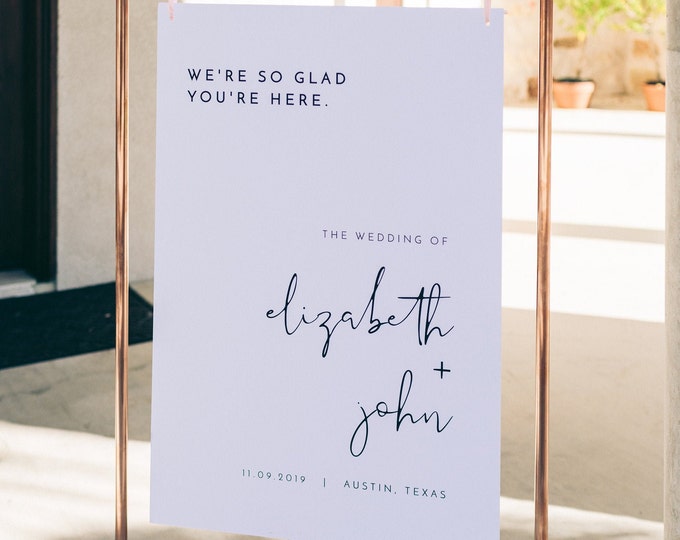 WE'RE SO GLAD
YOU'RE HERE.
THE WEDDING OF
elizabeth
+
john
11.09.2019 | AUSTIN, TEXAS